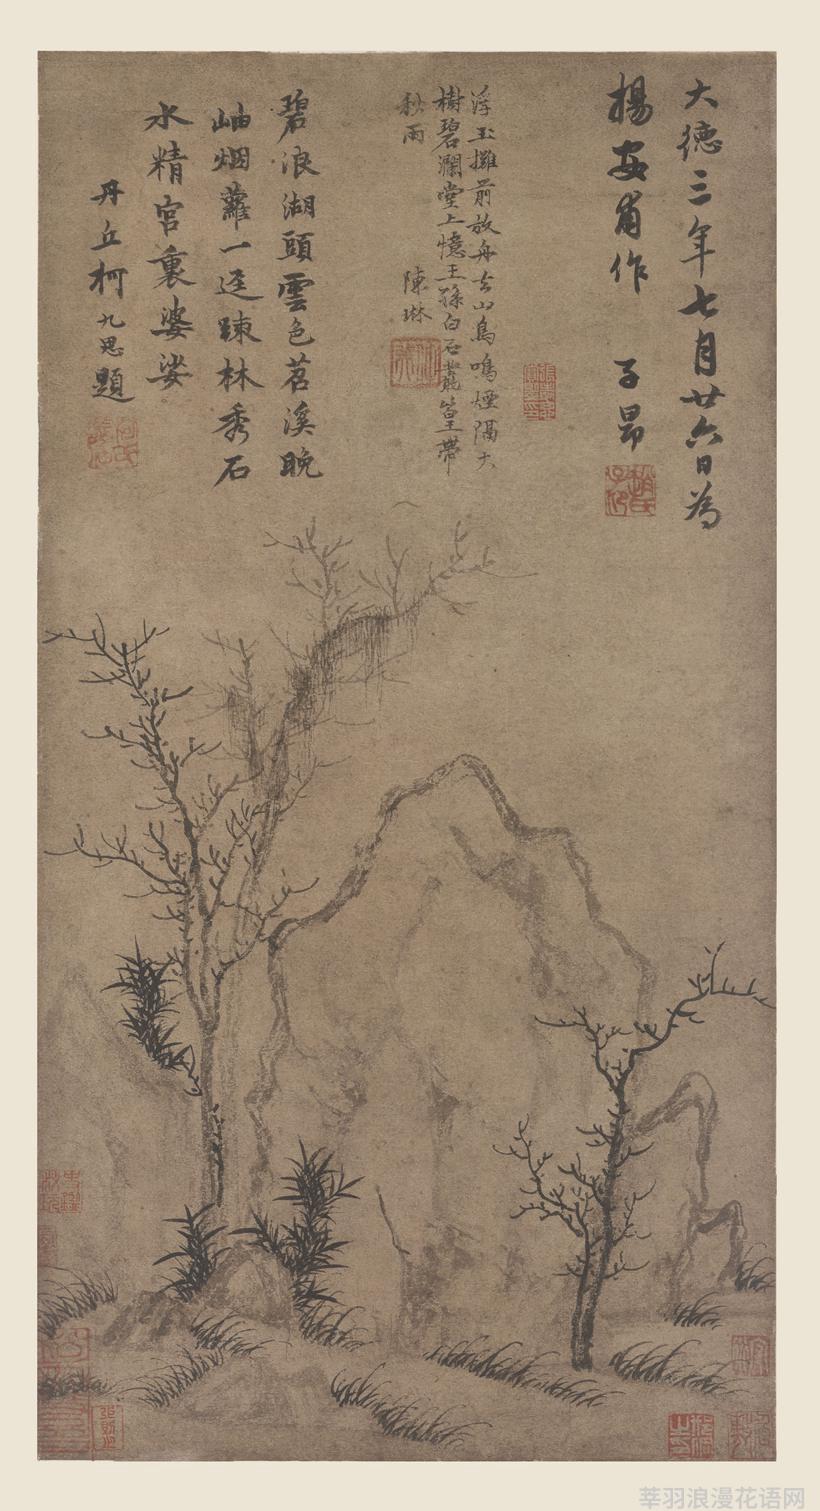 大德三年七月廿六日為
楊安甫作 子昂
趙氏子昂
浮玉灘前放舟去山鳥鳴煙隔大
樹碧瀾堂上憶王孫白石叢篁帶
秋雨 陳琳
碧浪湖頭雲色苕溪晚
岫烟蘿一逕踈林秀石
水精宮裏婆娑
丹丘柯九思題
莘羽浪漫花语网